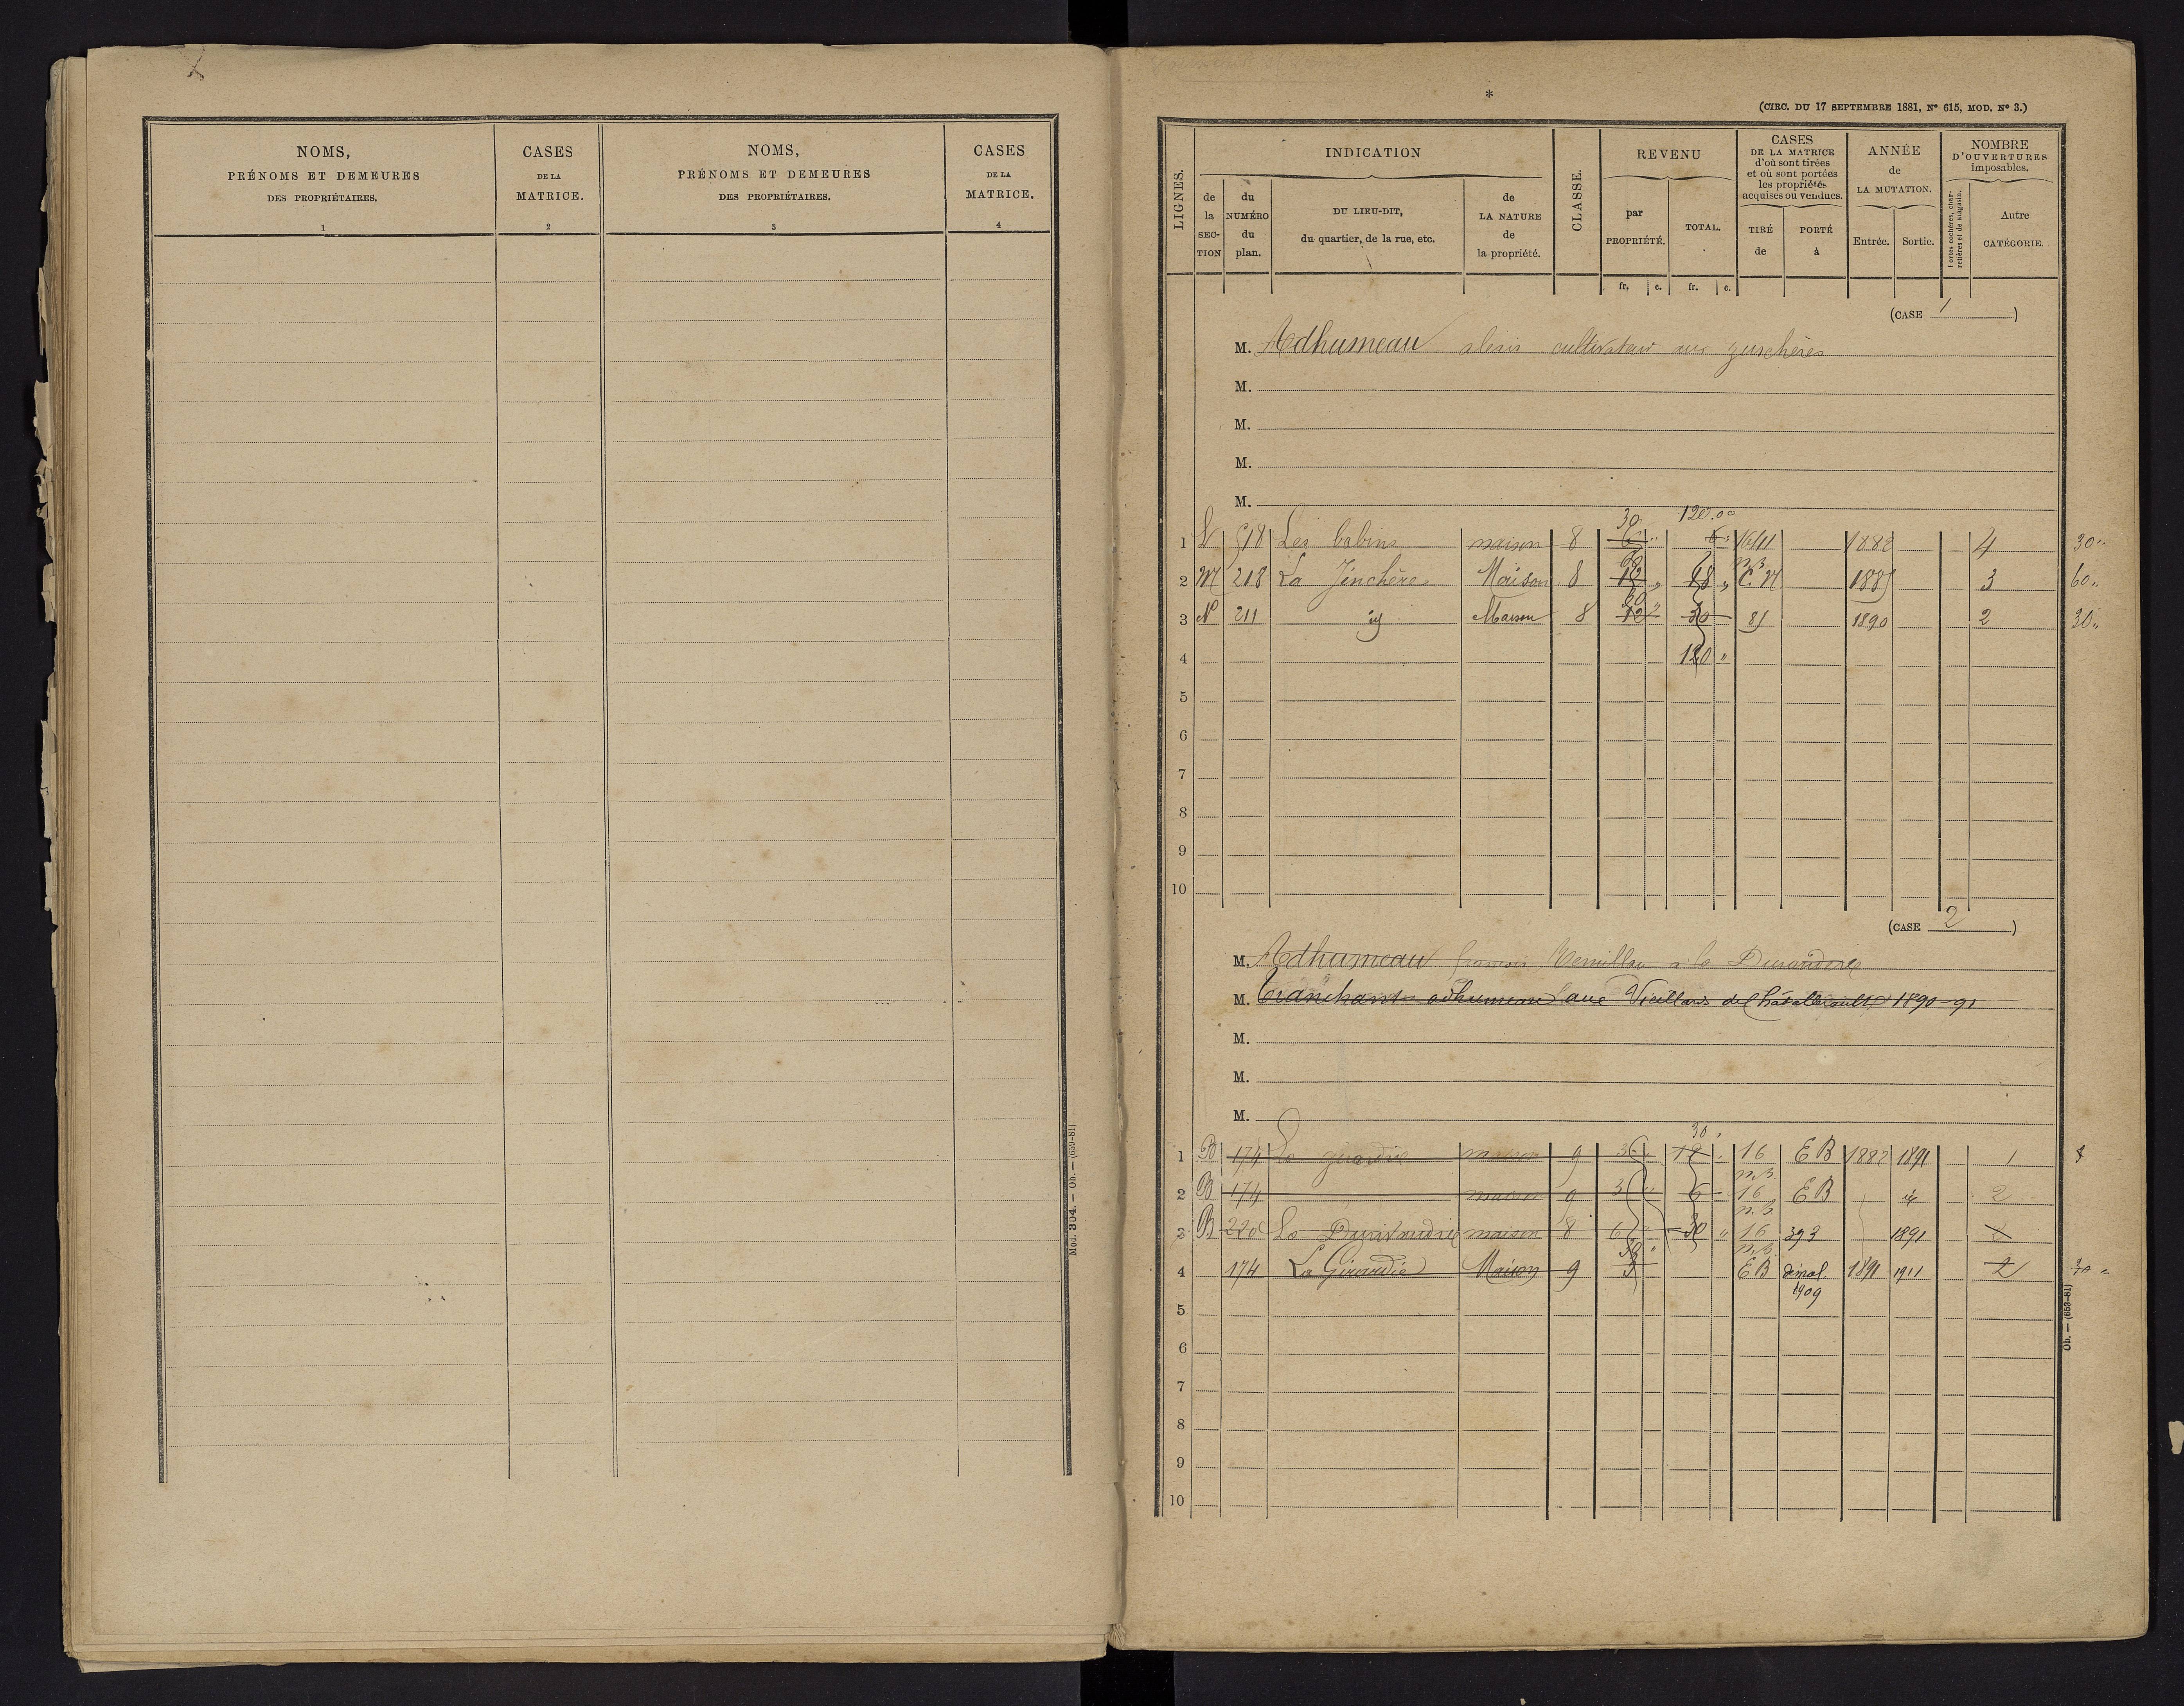 NOMS,
PRÉNOMS ET DEMEURES
DES PROPRIÉTAIRES.
1
CASES
DE LA
MATRICE.
2
NOMS,
PRÉNOMS ET DEMEURES
DES PROPRIÉTAIRES.
3
CASES
DE LA
MATRICE.
4
Mod. 304. — Ob. — (659-81)
*
(CIRC. DU 17 SEPTEMBRE 1881, Nº 615, MOD. Nº 3.)
LIGNES.
INDICATION
de la SECTION
du NUMÉRO du plan.
DU LIEU-DIT,
du quartier, de la rue, etc.
de
LA NATURE
de
la propriété.
CLASSE.
REVENU
par
PROPRIÉTÉ.
TOTAL.
fr. c. fr. c.
CASES
DE LA MATRICE
d'où sont tirées
et où sont portées
les propriétés
acquises ou vendues.
TIRÉ
de
PORTÉ
à
ANNÉE
de
LA MUTATION.
Entrée. Sortie.
NOMBRE
D'OUVERTURES
imposables.
Portes cochères, charretières et de magasin.
Autre
CATÉGORIE.
(CASE 1)
M. Adhumeau alexis cultivateur
M.
M.
M.
M.
30 120.00
1 518 Les babins maison 8 6 " 6 " 1641 1882 4 30 "
2 M 218 La Jinchère Maison 8 12 " 18 " 1885 3 60 "
3 N 211 Maison 8 12 30 85 1890 2 30 "
4 120 "
5
6
7
8
9
10
(CASE 2)
M. Adhumeau françois à la
M. Tranchant adhumeau aux Vieillards de Châtellerault 1890-91
M.
M.
M.
30 "
1 B 174 La girardie maison 9 3 " 12 " 16 EB 1882 1891 1
2 B 174 maison 9 3 " 6 16 EB 2
3 B 220 La maison 8 6 30 " 16 393 1891 2
4 174 La Girardie Maison 9 3 EB démol. 1891 1911 2 30 "
1909
5
6
7
8
9
10
Ob. — (659-81)